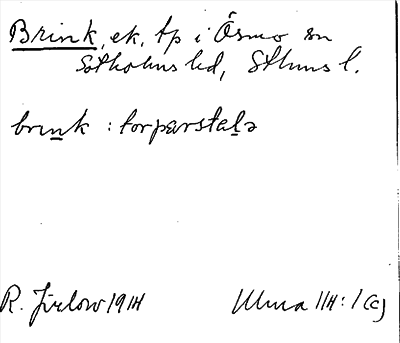 Brink, ek, tp i Ösmo sn
Sotholms hd, Sthms l.
brink : torparstalə
R. Jirlow 1914
Ulma 114:1(c)